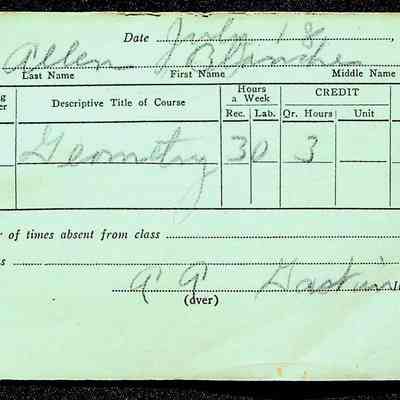 Date July 18,
Allen Blanche
Last Name First Name Middle Name
Descriptive Title of Course Hours a Week CREDIT
Rec. Lab. Qr. Hours Unit
Geometry 3 0 3
r of times absent from class
s
(over)